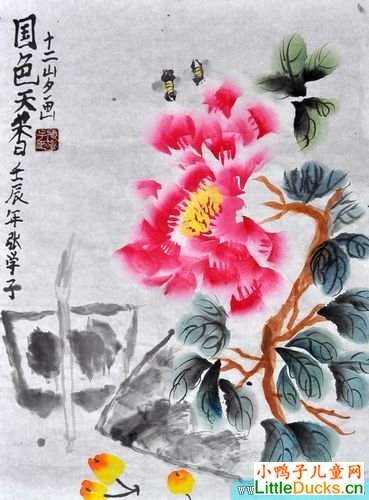 国色天香 壬辰年张学子
十二岁画
www
小鸭子儿童网
LittleDucks.cn